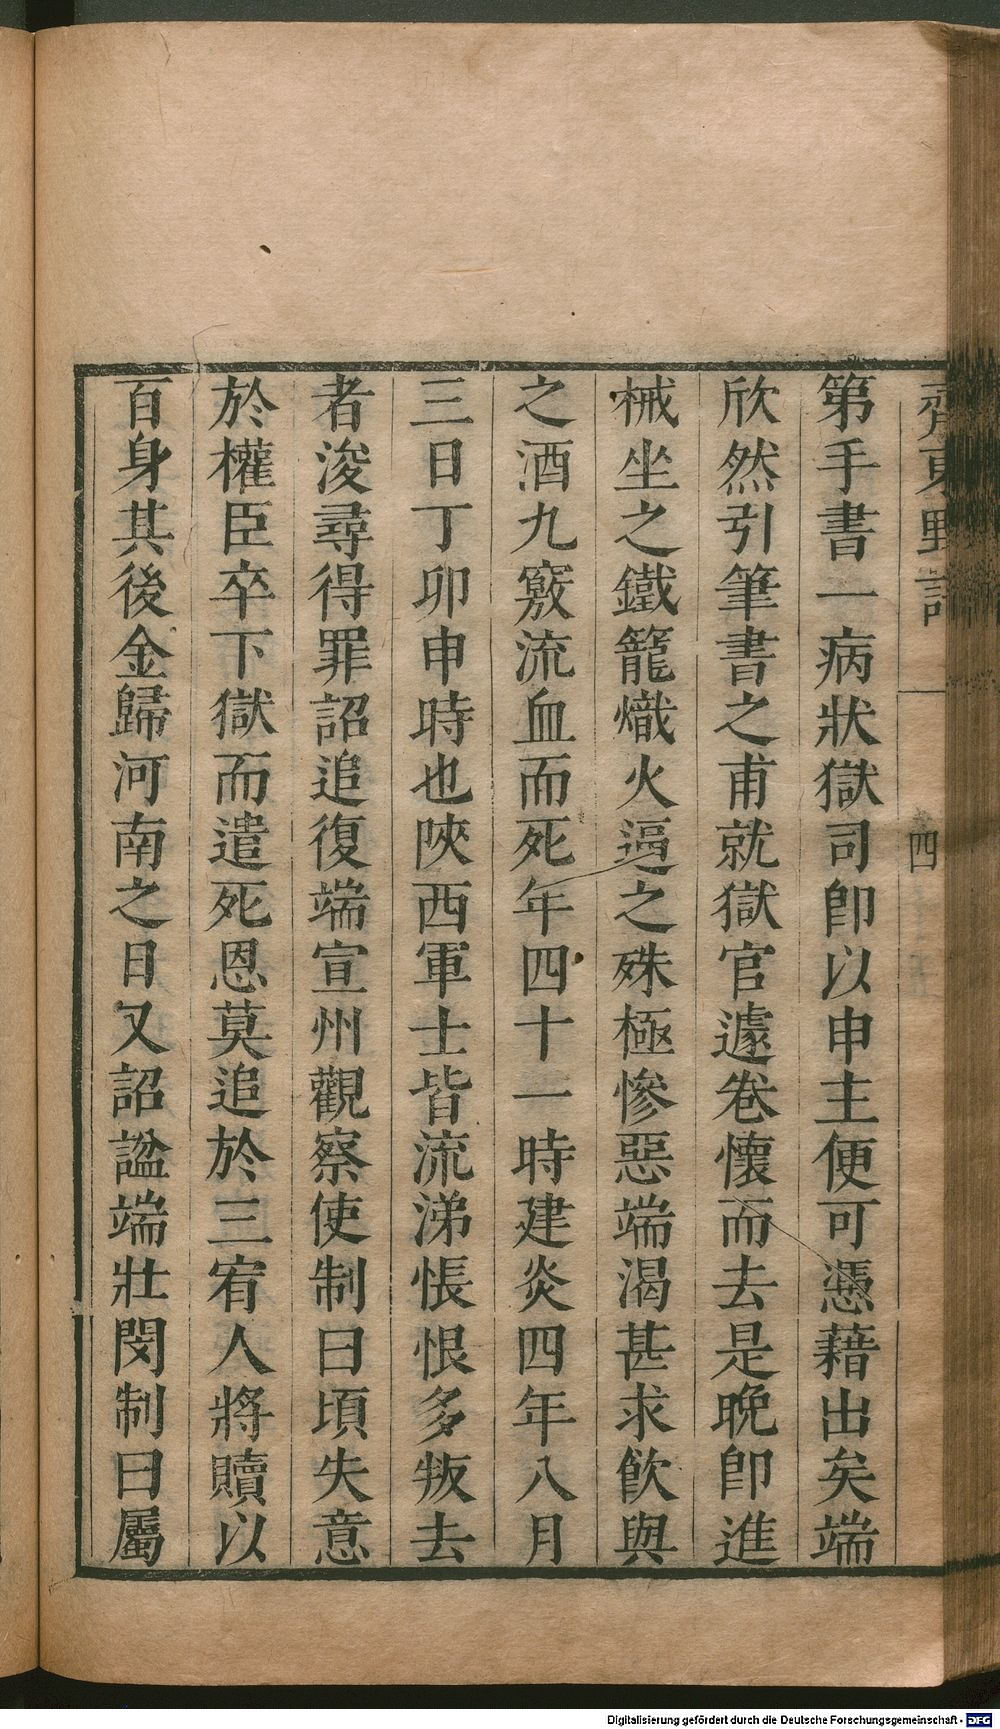 齊東野語
四
第手書一病狀獄司卽以申主便可憑藉出矣端
欣然引筆書之甫就獄官遽卷懷而去是晚卽進
械坐之鐵籠熾火逼之殊極慘惡端渴甚求飲與
之酒九竅流血而死年四十一時建炎四年八月
三日丁卯申時也陝西軍士皆流涕悵恨多叛去
者浚尋得罪詔追復端宣州觀察使制曰頃失意
於權臣卒下獄而遣死恩莫追於三宥人將贖以
百身其後金歸河南之日又詔謚端壯閔制曰屬
Digitalisierung gefördert durch die Deutsche Forschungsgemeinschaft - DFG